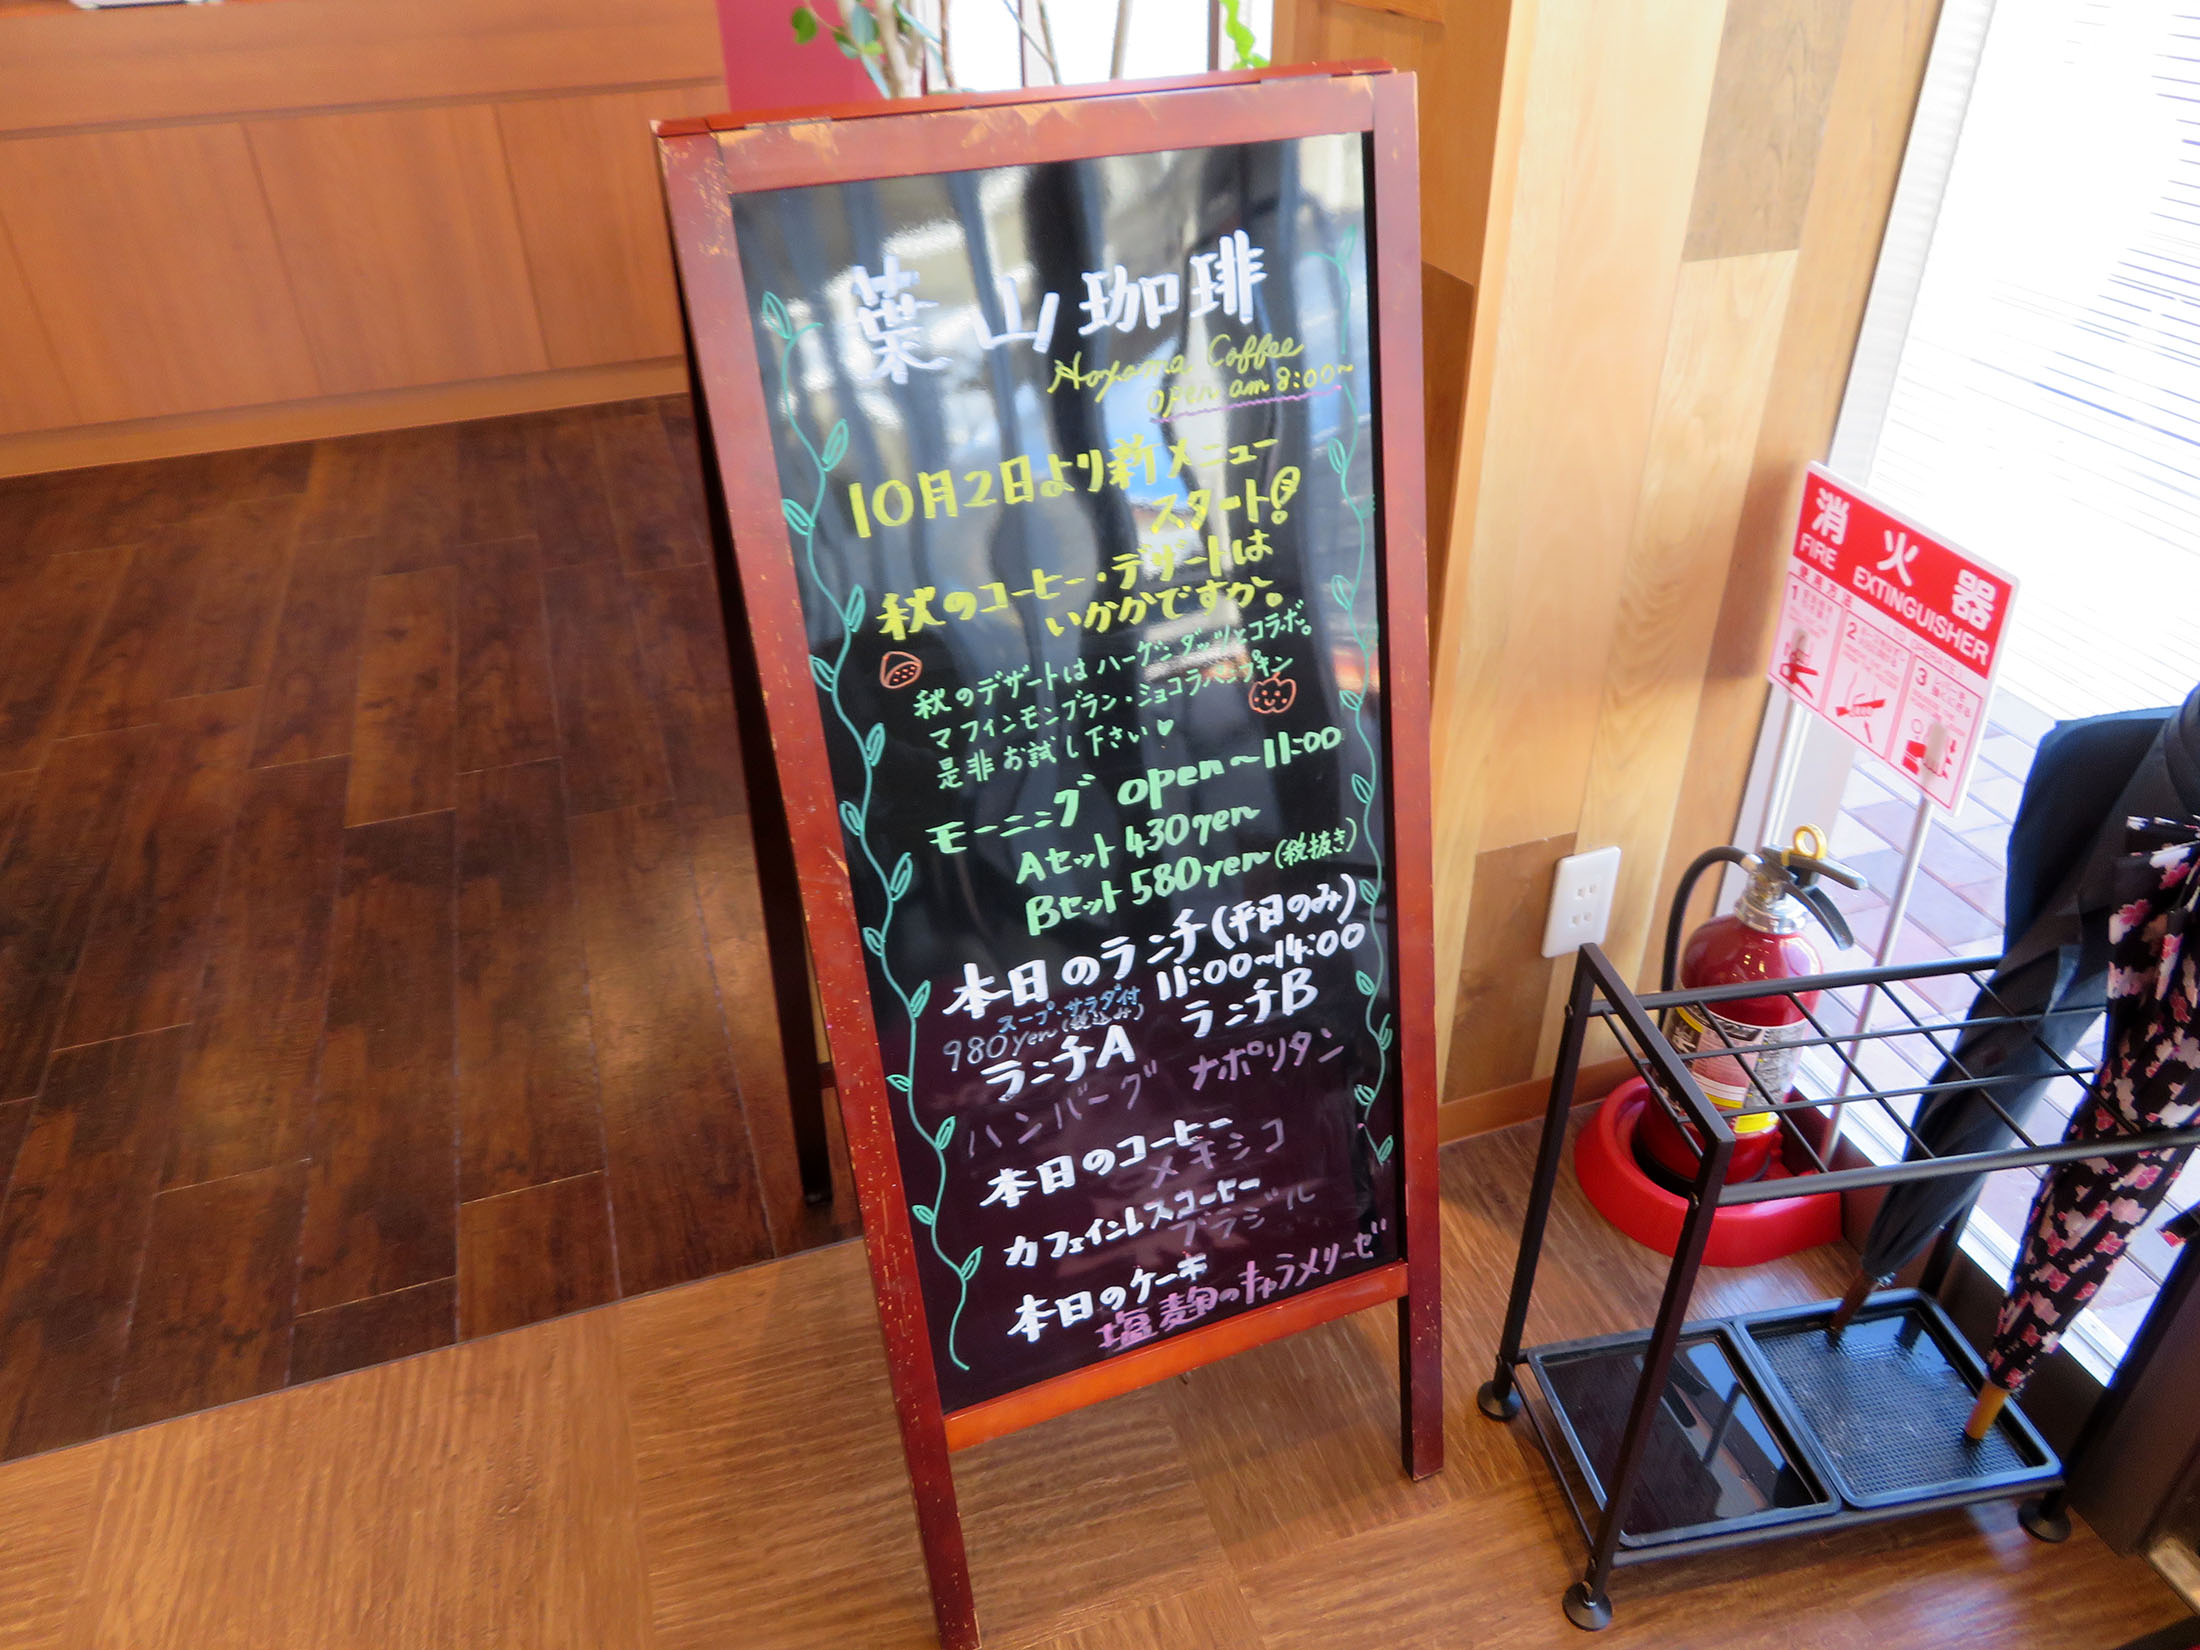 葉山珈琲
Hayama Coffee
open am 8:00~
10月2日より新メニュー
スタート!
秋のコーヒー・デザートは
いかかですか。
秋のデザートはハーゲンダッツとコラボ。
マフィンモンブラン・ショコラパンプキン
是非お試し下さい♥
モーニング open~11:00
Aセット 430yen
Bセット 580yen(税抜き)
本日のランチ(平日のみ)
11:00~14:00
スープ・サラダ付
980yen(税込み)
ランチA ランチB
ハンバーグ ナポリタン
本日のコーヒー
メキシコ
カフェインレスコーヒー
ブラジル
本日のケーキ
塩麹のキャラメリーゼ
消火器
FIRE EXTINGUISHER
使用方法
TO OPERATE
1
2
3